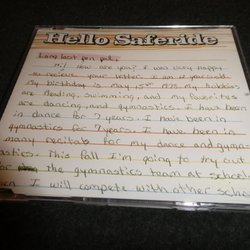 Hello Saferide
Long lost pen pal,
Hi! How are you? I was very happy
to recieve your letter. I am 12 years old.
My birthday is may 15th 1978 my hobbies
are reading, swimming, and my favorites
are dancing, and gymnastics. I have been
in dance for 7 years. I have been in
gymnastics for 7 years. I have been in
many recitals for my dance and gymn-
astics. This fall I'm going to try out
for the gymnastics team at school.
I will compete with other scho